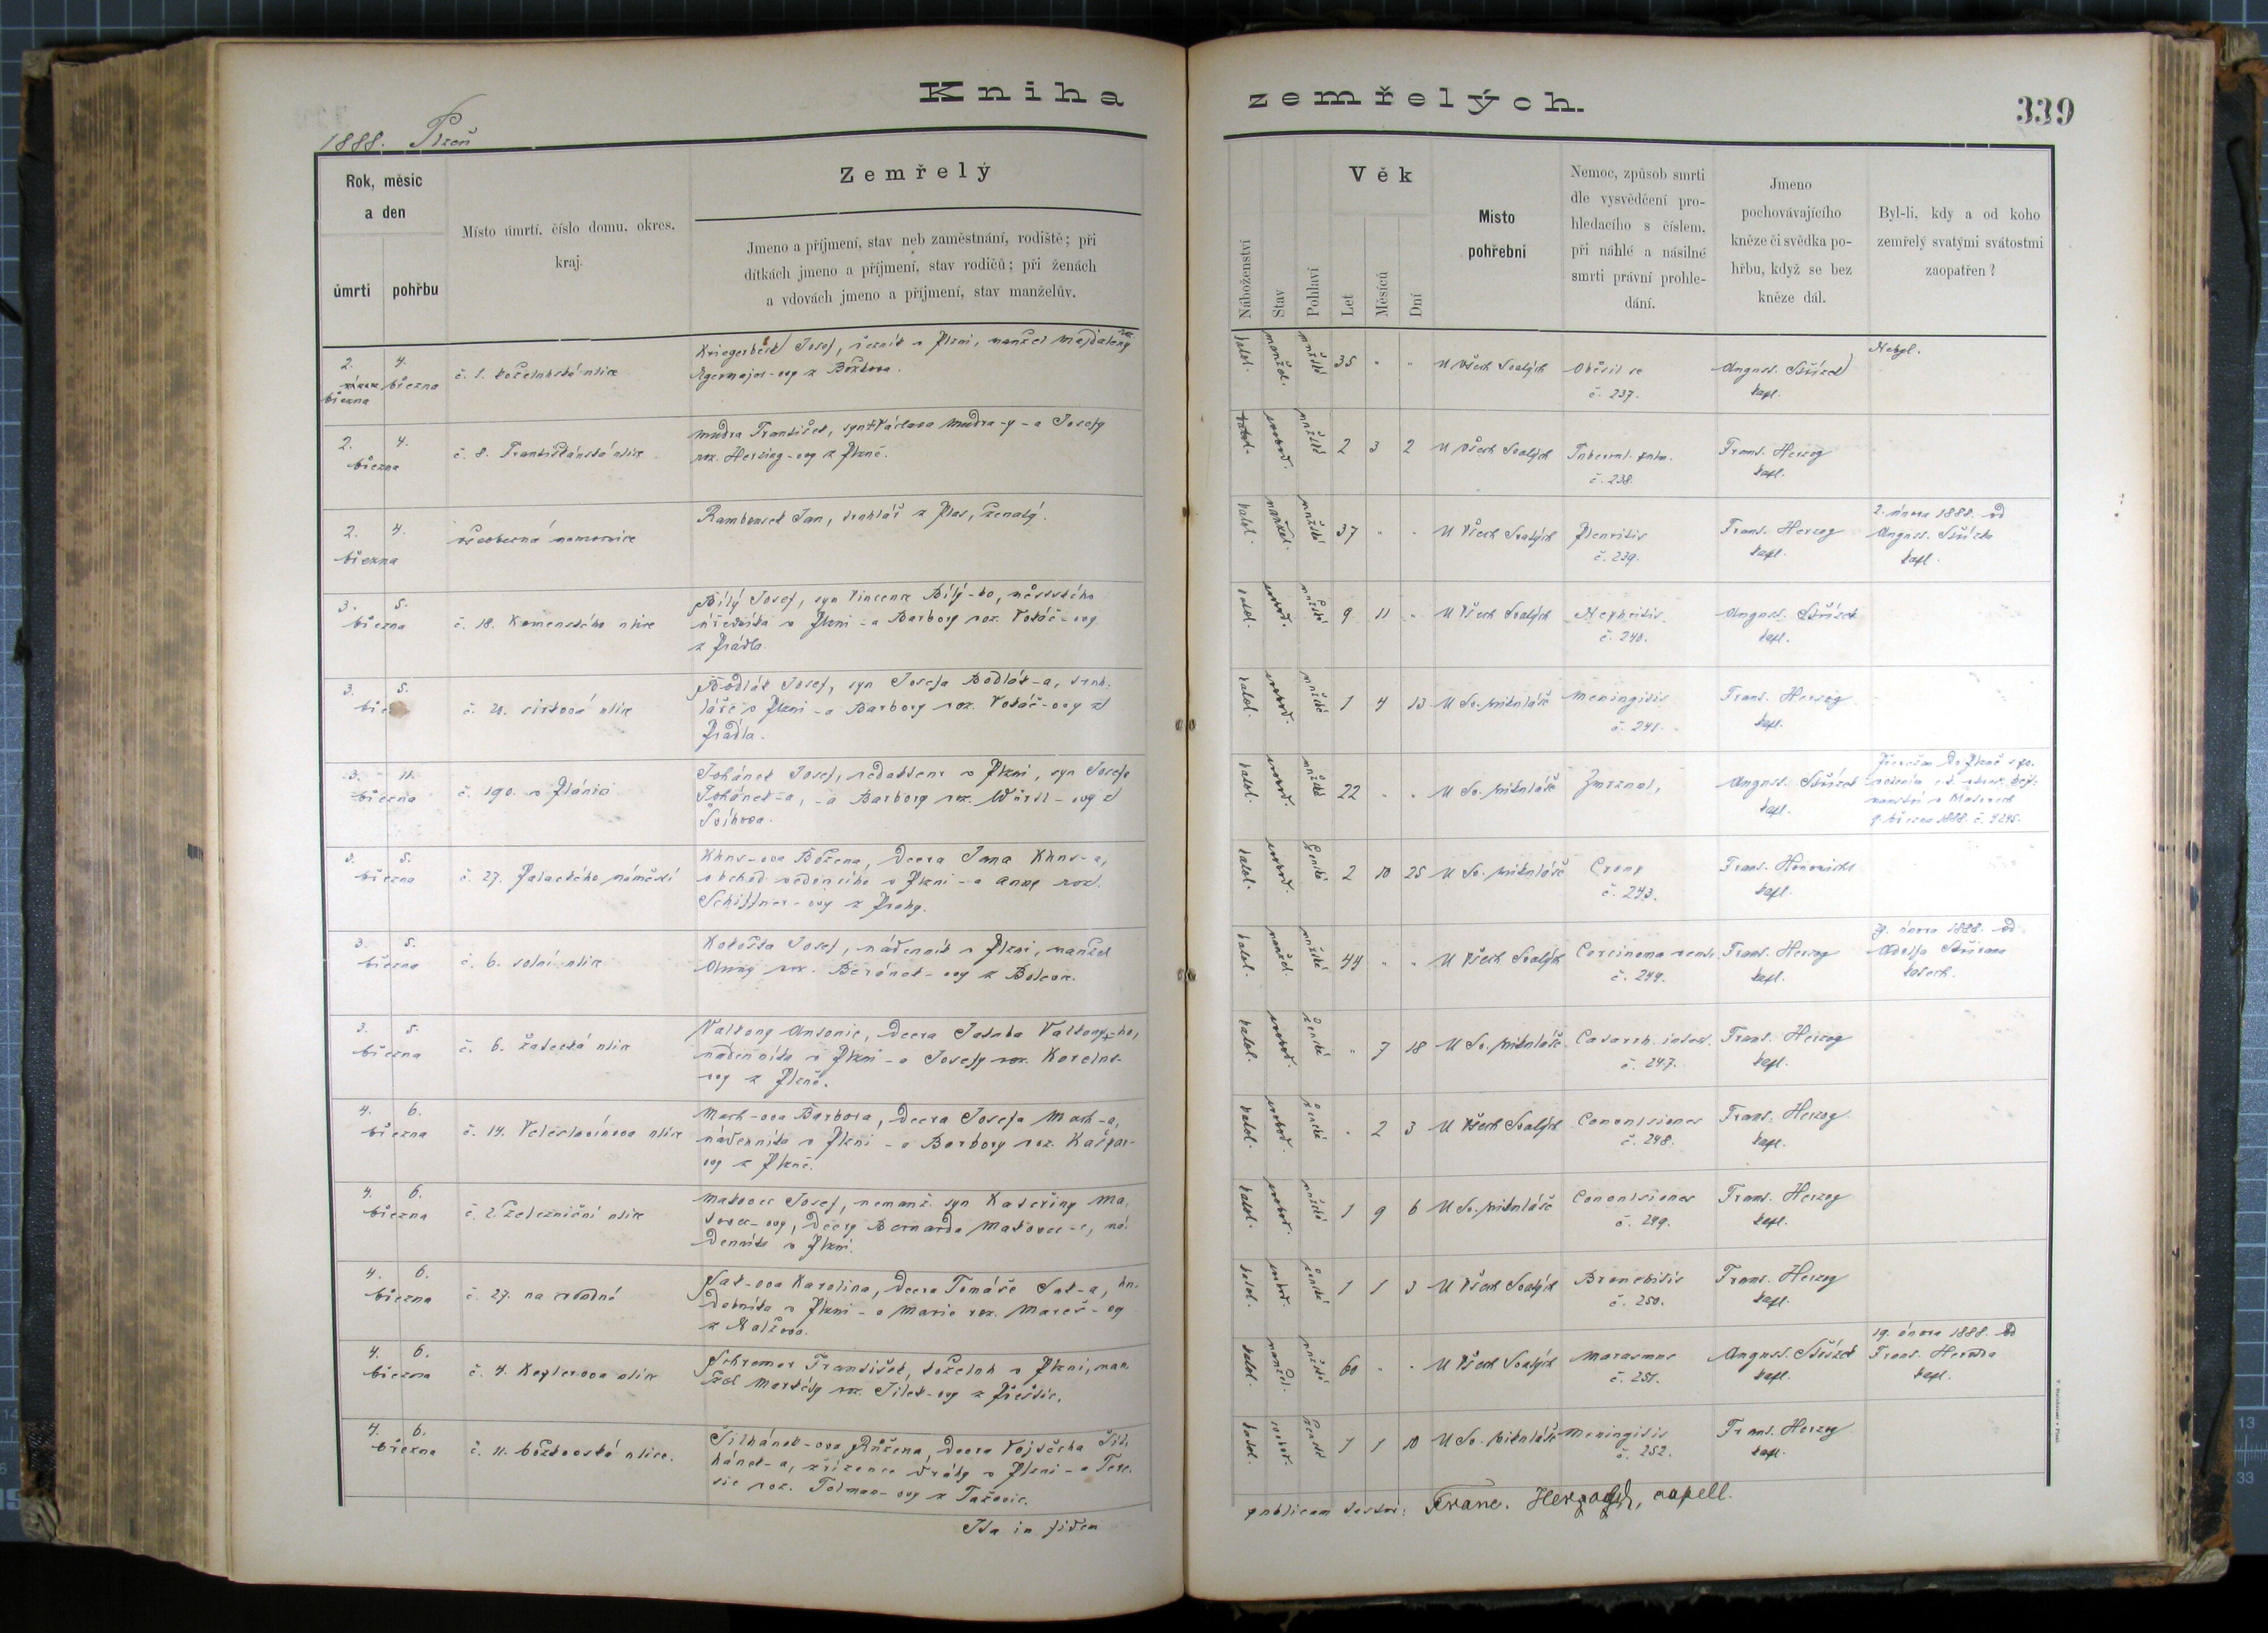 Kniha zemřelých.
339
1888. Plzeň
Rok, měsíc
a den
úmrtí pohřbu
Místo úmrtí, číslo domu, okres,
kraj.
Zemřelý
Jmeno a příjmení, stav neb zaměstnání, rodiště; při
dítkách jmeno a příjmení, stav rodičů; při ženách
a vdovách jmeno a příjmení, stav manželův.
Náboženství
Stav
Pohlaví
Věk
Let
Měsíců
Dní
Místo
pohřební
Nemoc, způsob smrti
dle vysvědčení pro-
hledacího s číslem,
při náhlé a násilné
smrti právní prohle-
dání.
Jmeno
pochovávajícího
kněze či svědka po-
hřbu, když se bez
kněze dál.
Byl-li, kdy a od koho
zemřelý svatými svátostmi
zaopatřen?
2. 4.
března března
č. 1. koželužská ulice
Josef, řezník v Plzni, manžel Majdaleny
z Božkova.
katol. manžel. mužské 35 " "
U Všech Svatých
Oběsil se
č. 237.
August. Střízek
kapl.
Nebyl.
2. 4.
března
č. 8. Františkánská ulice
Mudra František, syn Václava Mudra-y - a Josefy
roz. Herzing-ovy z Plzně.
katol. svobod. mužské 2 3 2
U Všech Svatých
Tuberkul. pulm.
č. 238.
Frant. Herzog
kapl.
2. 4.
března
všeobecná nemocnice
Rambousek Jan, truhlář z Plas, ženatý.
katol. manžel. mužské 37 " "
U Všech Svatých
Pleuritis
č. 239.
Frant. Herzog
kapl.
2. února 1888. od
August. Střízka
kapl.
3. 5.
března
č. 18. Komenského ulice
Bílý Josef, syn Vincence Bílý-ho, městského
úředníka v Plzni - a Barbory roz. Votáč-ovy
z Prádla.
katol. svobod. mužské 9 11 "
U Všech Svatých
Nephritis.
č. 240.
August. Střízek
kapl.
3. 5.
č. 20. sirková ulice
Bodlák Josef, syn Josefa Bodlák-a, truh-
láře v Plzni - a Barbory roz. Votáč-ovy z
Prádla.
katol. svobod. mužské 1 4 13
U Sv. Mikuláše
Meningitis
č. 241.
Frant. Herzog
kapl.
3. 11.
března
č. 190. v Pláni
Johánek Josef, redakteur v Plzni, syn Josefa
Johánek-a, - a Barbory roz. Würtl-ovy z
Švihova.
katol. svobod. mužské 22 " "
U Sv. Mikuláše
Zmrznul,
August. Střízek
kapl.
Převežen do Plzně s po-
volením c.k. okres. hejt-
manství v
9. března 1888. č. 4245.
3. 5.
března
č. 27. Palackého náměstí
Božena, dcera Jana
obchod. vedoucího v Plzni - a Anny roz.
Schittner-ovy z Prahy.
katol. svobod. ženské 2 10 25
U Sv. Mikuláše
Croup
č. 243.
Frant.
kapl.
3. 5.
března
č. 6. solní ulice
Kokoška Josef, nádenník v Plzni, manžel
Anny roz. Beránek-ovy z Bolevce.
katol. manžel. mužské 44 " "
U Všech Svatých
Carcinoma ventr.
č. 244.
Frant. Herzog
kapl.
února 1888. od
Adolfa
katech.
3. 5.
března
č. 6. žatecká ulice
Valtony Antonie, dcera Jakuba Valtony-ho,
nádenníka v Plzni - a Josefy roz.
ovy z Plzně.
katol. svobod. ženské " 7 18
U Sv. Mikuláše
Catarrh. intest.
č. 247.
Frant. Herzog
kapl.
4. 6.
března
č. 14. Veleslavínova ulice
Mach-ova Barbora, dcera Josefa Mach-a,
nádenníka v Plzni - a Barbory roz. Kašpar-
ovy z Plzně.
katol. svobod. ženské " 2 3
U Všech Svatých
Convulsiones
č. 248.
Frant. Herzog
kapl.
4. 6.
března
č. 2. železniční ulice
Makovec Josef, nemanž. syn Kateřiny Ma-
kovec-ovy, dcery Bernarda Makovec-e, ná-
denníka v Plzni.
katol. svobod. mužské 1 9 6
U Sv. Mikuláše
Convulsiones
č. 249.
Frant. Herzog
kapl.
4. 6.
března
č. 27. na
Karolina, dcera Tomáše
v Plzni - a Marie roz. Mareš-ovy
z
katol. svobod. ženské 1 1 3
U Všech Svatých
Bronchitis
č. 250.
Frant. Herzog
kapl.
4. 6.
března
č. 4. Keplerova ulice
Schremer František, koželuh v Plzni, man-
žel Markéty roz. Tilek-ovy z Přeštic.
katol. manžel. mužské 60 " "
U Všech Svatých
Marasmus
č. 251.
August. Střízek
kapl.
19. února 1888. od
Frant.
kapl.
4. 6.
března
č. 11. božkovská ulice.
Šilhánek-ova Růžena, dcera Vojtěcha Šil-
hánek-a, zřízence dráhy v Plzni - a Tere-
sie roz. Tolman-ovy z Tažovic.
katol. svobod. ženské 1 1 10
U Sv. Mikuláše
Meningitis
č. 252.
Frant. Herzog
kapl.
Ita in fidem
publicam testor: Franc. Herzog, capell.